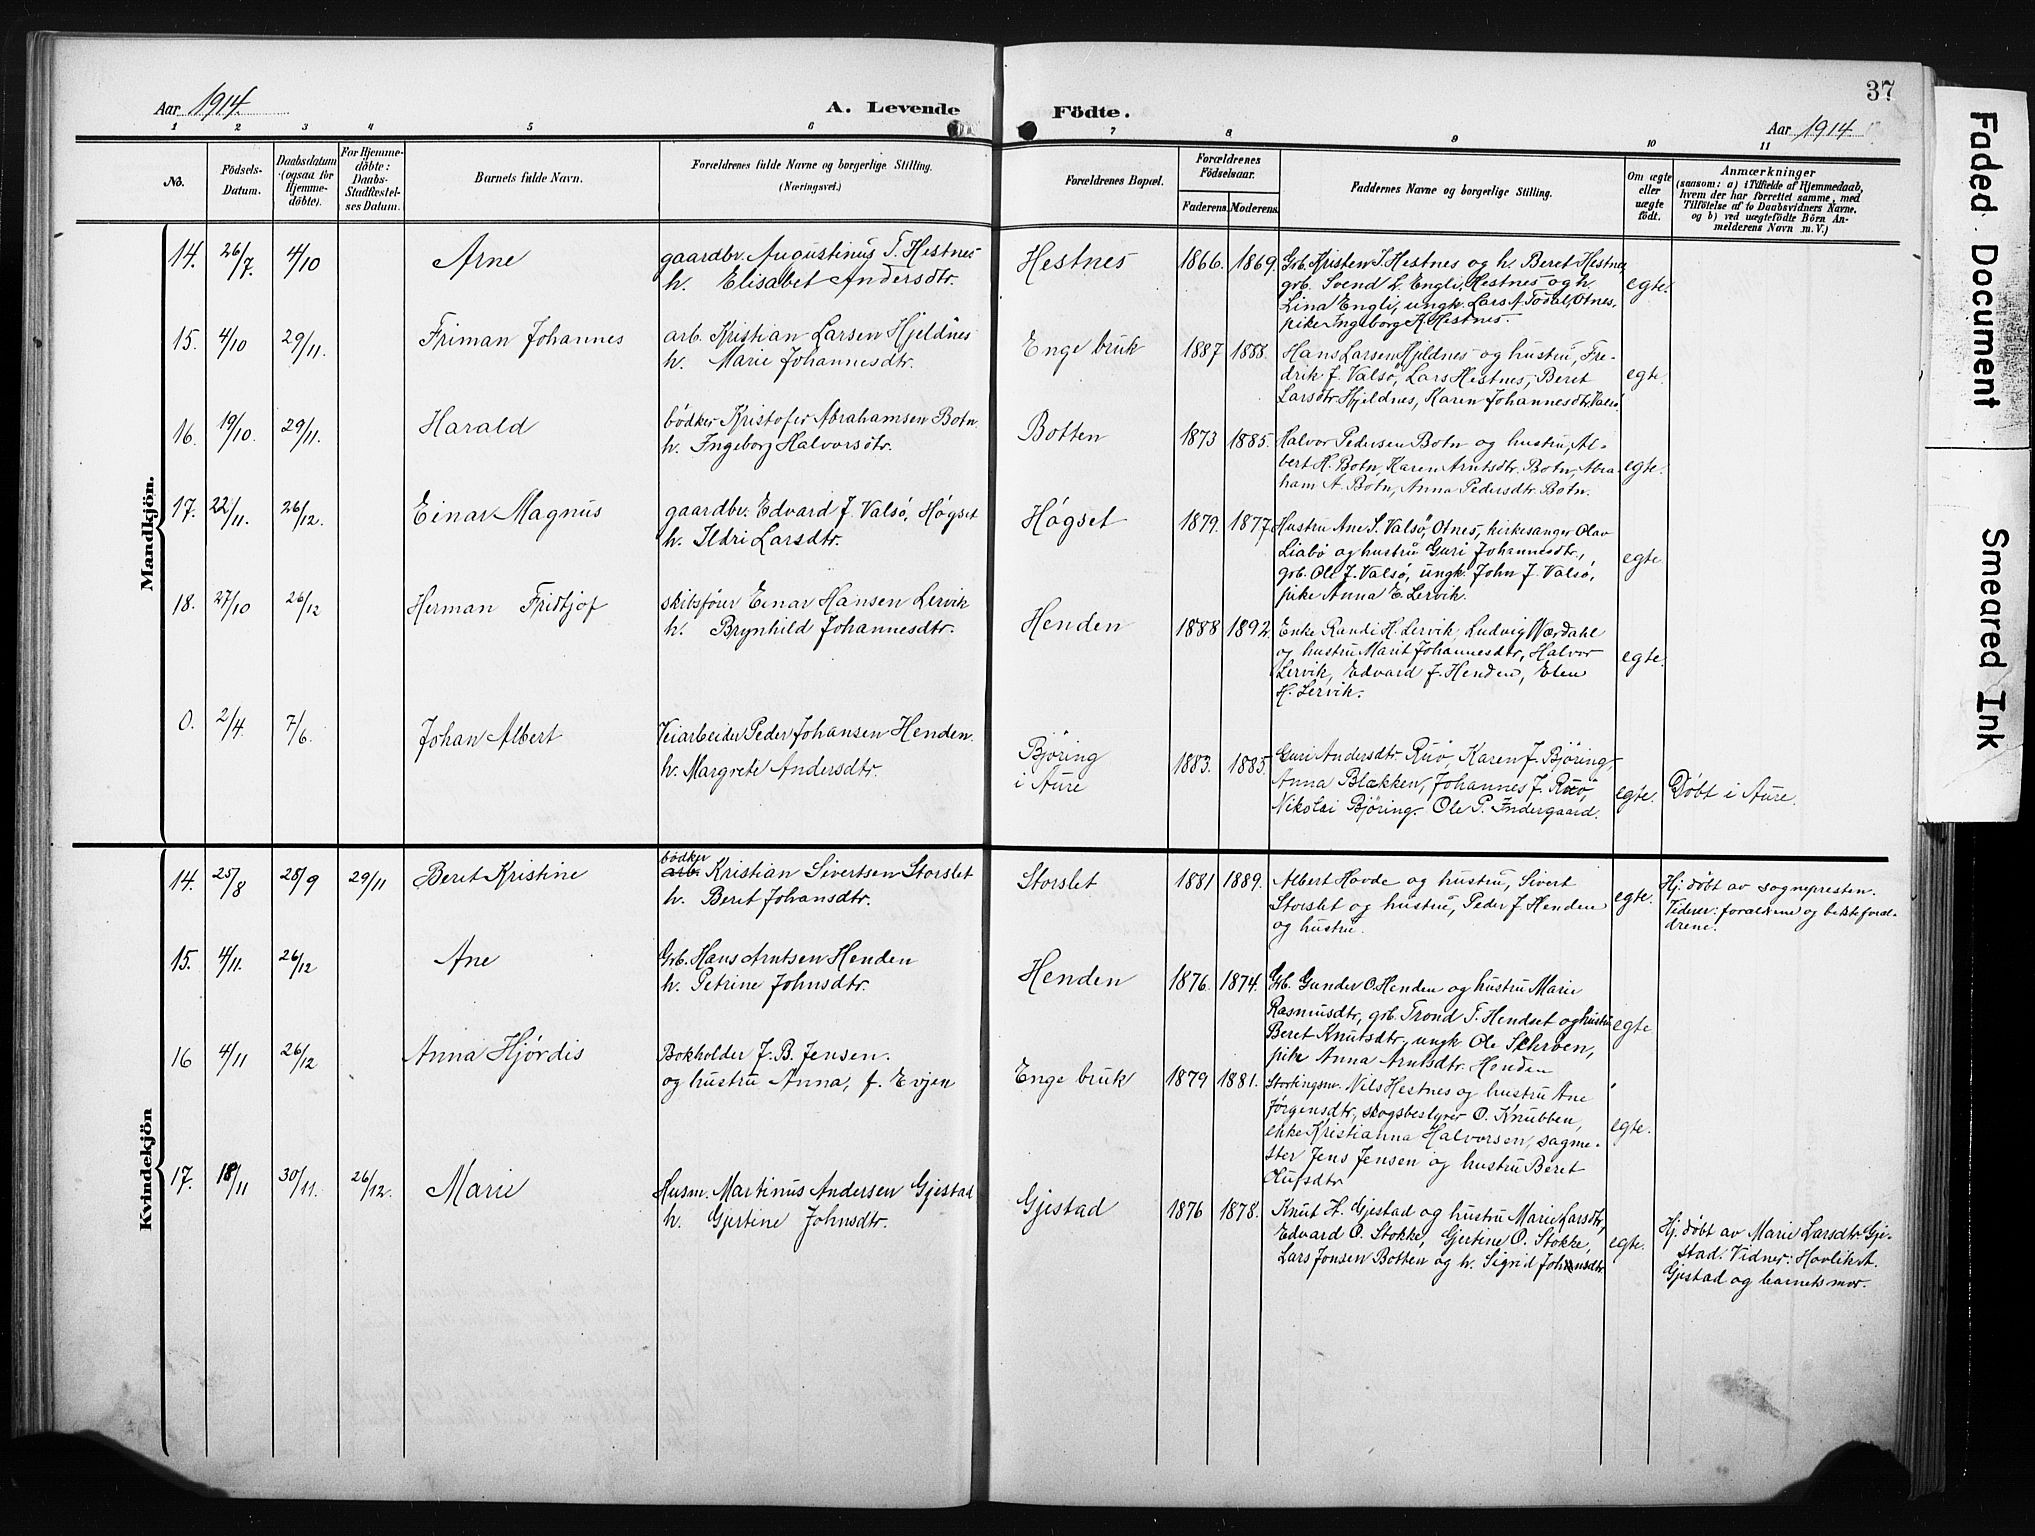 37
Aar 1914.
A. Levende Födte.
Aar 1914
1 2 3 4 5 6 7 8 9 10 11
No.
Födsels-
Datum.
Daabsdatum
(ogsaa for
Hjemme-
döbte).
For Hjemme-
döbte:
Daabs-
Stadfæstel-
ses Datum.
Barnets fulde Navn.
Forældrenes fulde Navne og borgerlige Stilling.
(Næringsvei.)
Forældrenes Bopæl.
Forældrenes
Födselsaar.
Faderens. Moderens.
Faddernes Navne og borgerlige Stilling.
Om ægte
eller
uægte
födt.
Anmærkninger
(saasom: a) i Tilfælde af Hjemmedaab,
hvem der har forrettet samme, med
Tilföielse af to Daabsvidners Navne,
og b) ved uægtefödte Börn An-
melderens Navn m. V.)
Mandkjön.
14. 26/7. 4/10 Arne
gaardbr. Augustinus T. Hestnes
h. Elisabet Andersdtr.
Hestnes 1866. 1869.
Grb. Kristen J. Hestnes og h. Beret Hestnes
grb. Svend L. Engli, Hestnes og h.
Lina Engli, ungk. Lars A. Todal, Otnes,
pike Ingeborg K. Hestnes.
egte.
15. 4/10 29/11. Friman Johannes
arb. Kristian Larsen Hjeldnes
h. Marie Johannesdtr.
Enge bruk 1887 1888.
Hans Larsen Hjeldnes og hustru, Fre-
drik J. Valsø, Lars Hestnes, Beret
Larsdtr. Hjeldnes, Karen Johannesdtr. Valsø
egte.
16. 19/10. 29/11. Harald
bødker Kristofer Abrahamsen Botn
h. Ingeborg Halvorsdtr.
Botten 1873 1885.
Halvor Pedersen Botn og hustru, Al-
bert H. Botn, Karen Arntsdtr. Botn, Abra-
ham A. Botn, Anna Pedersdtr. Botn.
egte.
17. 22/11. 26/12. Einar Magnus
gaardbr. Edvard J. Valsø, Høgset
h. Ildri Larsdtr.
Høgset 1879. 1877
Hustru Ane S. Valsø, Otnes, kirkesanger Olav
Liabø og hustru Guri Johannesdtr.,
grb. Ole J. Valsø, ungk. John J. Valsø,
pike Anna E. Lervik.
egte.
18. 27/10 26/12 Herman Fridtjof
skibsfører Einar Hansen Lervik
h. Brynhild Johannesdtr.
Henden 1888 1892.
Enke Randi H. Lervik, Ludvig Wærdahl
og hustru Marit Johannesdtr., Halvor
Lervik, Edvard J. Henden, Elen
H. Lervik.
egte.
0. 2/4. 7/6. Johan Albert
Veiarbeider Peder Johansen Henden.
h. Margrete Andersdtr.
Bjøring
i Aure
1883. 1885.
Guri Andersdtr. Ruø, Karen J. Bjøring,
Anna Blækken, Johannes J. Ruø,
Nikolai Bjøring. Ole P. Indergaard.
egte. Døbt i Aure.
Kvindekjön
14. 25/8 28/9 29/11 Beret Kristine
bødker
arb. Kristian Sivertsen Storslet
h. Beret Johansdtr.
Storslet 1881 1889.
Albert Hovde og hustru, Sivert
Storslet og hustru, Peder J. Henden
og hustru.
egte.
Hj. døbt av sognepresten.
Vidner: forældrene og besteforæl-
drene.
15. 4/11. 26/12 Ane
Grb. Hans Arntsen Henden
h. Petrine Johnsdtr.
Henden 1876. 1874.
Grb. Gunder O. Henden og hustru Marie
Rasmusdtr, grb. Trond T. Hendset og hustru
Beret Knutsdtr., ungk. Ole Skhroen,
pike Anna Arntsdtr. Henden
egte
16 4/11 26/12 Anna Hjørdis
Bokholder J. B. Jensen.
og hustru Anna, f. Evjen
Enge bruk 1879 1881.
Stortingsm. Nils Hestnes og hustru Ane
Jørgensdtr, skogsbestyrer O. Knubben,
enke Kristianna Halvorsen, sagme-
ster Jens Jensen og hustru Beret
Olufsdtr
egte.
17. 18/11 30/11. 26/12. Marie
Husm. Martinus Andersen Gjestad
h. Gjertine Johnsdtr.
Gjestad 1876 1878.
Knut H. Gjestad og hustru Marie Larsdtr,
Edvard O. Stokke, Gjertine O. Stokke,
Lars Jonsen Botten og h. Sigrid Johnsdtr
egte.
Hj. døbt av Marie Larsdtr. Gje-
stad. Vidner: Hovlik A.
Gjestad og barnets mor.
Faded Document
Smeared Ink